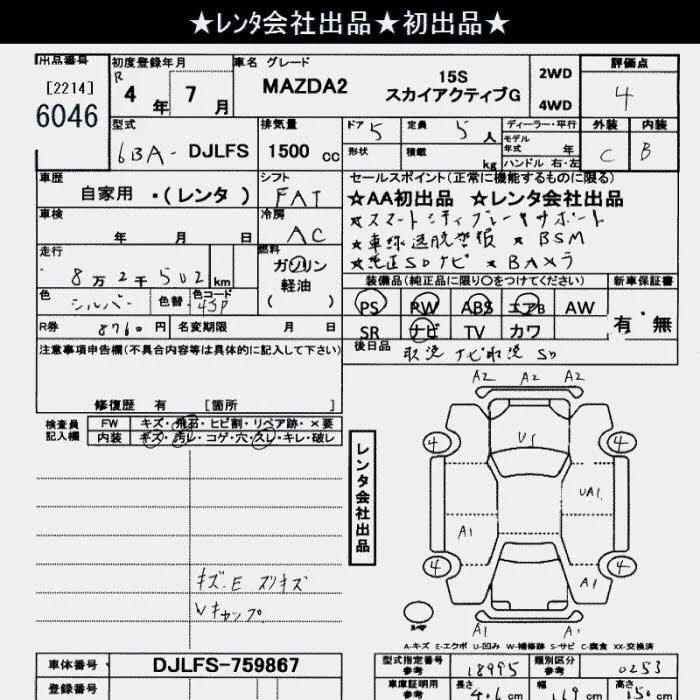 ★レンタ会社出品★初出品★
出品番号 初度登録年月 車名 グレード 評価点
[2214] R 4年 7月 MAZDA2 15S 2WD
6046 スカイアクティブG 4WD 4
型式 排気量 ドア 5 定員 5人 ディーラー・平行 外装 内装
6BA- DJLFS 1500 cc 形状 積載 kg モデル年式 年 C B
ハンドル 右・左
車歴 シフト セールスポイント(正常に機能するものに限る)
自家用 ・(レンタ ) FAT ★AA初出品 ★レンタ会社出品
車検 年 月 日 冷房 AC ★スマートシティブレーキサポート
★車線逸脱警報 ★BSM
走行 燃料 ★純正SDナビ ★Bカメラ
8万2千502km ガソリン 軽油 ( )
装備品(純正品に限り○をつけてください) 新車保証書
色 シルバー 色替 色コード 45P PS PW ABS エアB AW 有・無
R券 8760円 名変期限 月 日 SR ナビ TV カワ
後日品 取説 ナビ取説 SD
注意事項申告欄(不具合内容等は具体的に記入して下さい)
修復歴 有 [箇所 ]
検査員記入欄 FW キズ・飛石・ヒビ割・リペア跡・×要
内装 キズ・汚レ・コゲ・穴・スレ・キレ・破レ
A2 A2 A2
4 U1 4
UA1
A1
4 4
A1
A1
レンタ会社出品
キズ.E スリキズ
Wキャップ
A-キズ E-エクボ U-凹み W-補修跡 S-サビ C-腐食 XX-交換済
車体番号 DJLFS-759867 型式指定番号 参考 18995 類別区分 参考 0253
登録番号 車庫証明用 参考 長さ 406 cm 幅 169 cm 高さ 150 cm